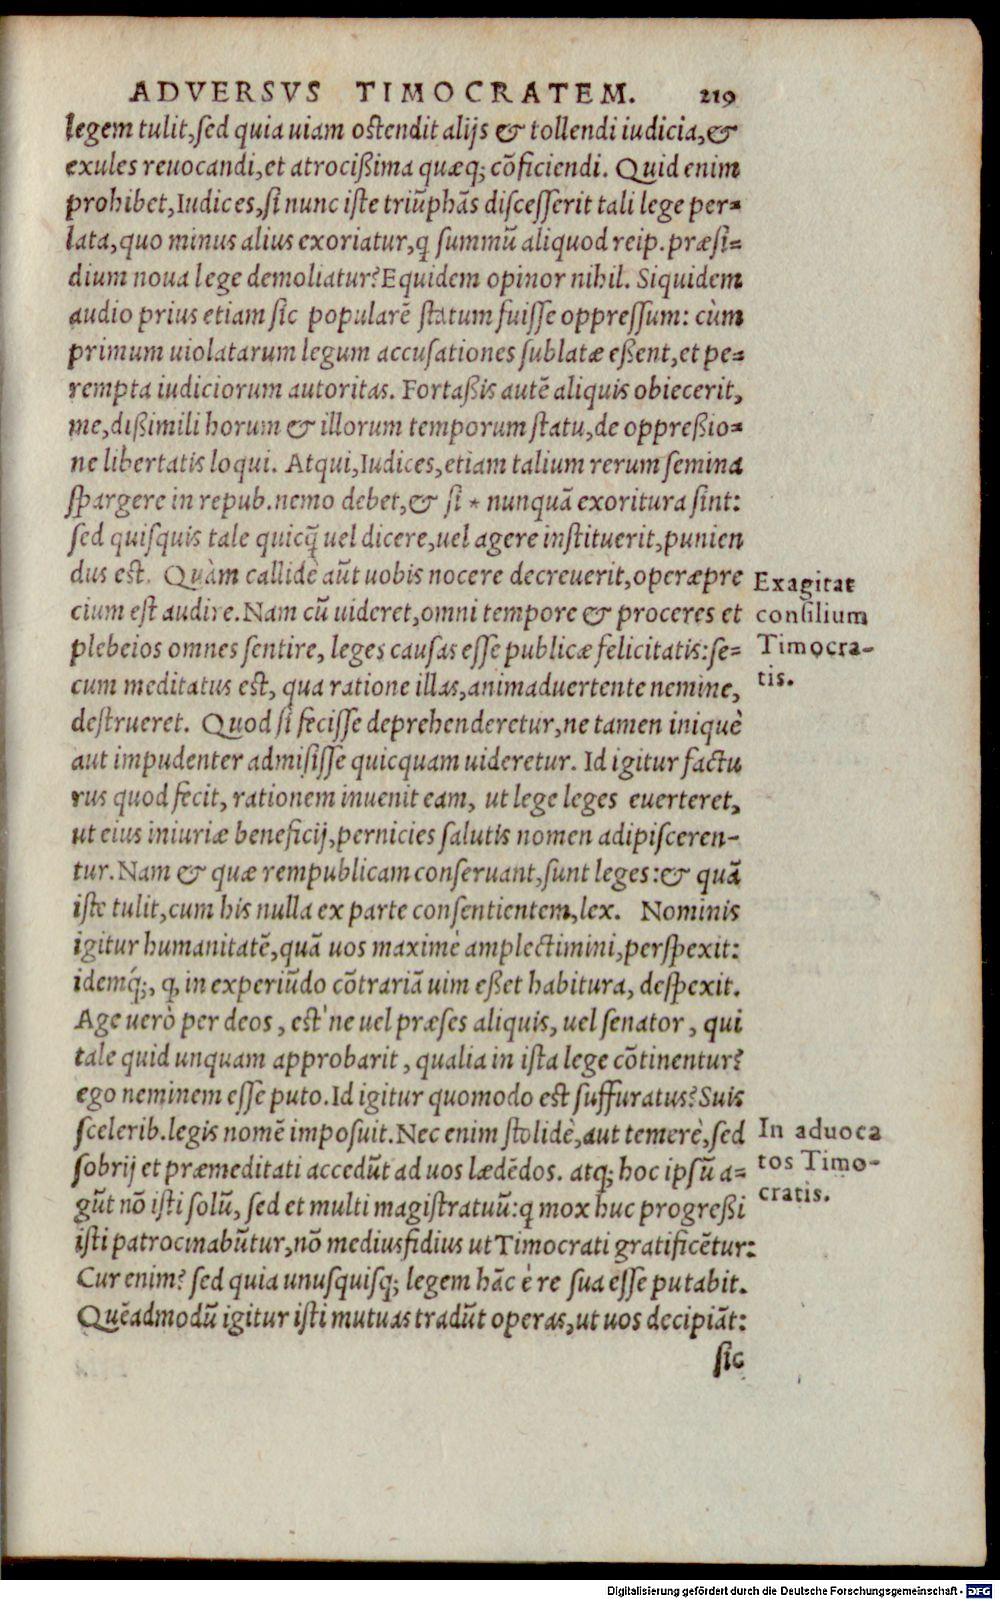 ADVERSVS TIMOCRATEM. 219
legem tulit, sed quia uiam ostendit alijs & tollendi iudicia, &
exules reuocandi, et atrocißima quæq; cõficiendi. Quid enim
prohibet, Iudices, si nunc iste triũphãs discesserit tali lege per=
lata, quo minus alius exoriatur, q̃ summũ aliquod reip. præsi=
dium noua lege demoliatur? Equidem opinor nihil. Siquidem
audio prius etiam sic popularẽ statum fuisse oppressum: cùm
primum uiolatarum legum accusationes sublatæ eßent, et pe=
rempta iudiciorum autoritas. Fortaßis autẽ aliquis obiecerit,
me, dißimili horum & illorum temporum statu, de oppreßio=
ne libertatis loqui. Atqui, Iudices, etiam talium rerum semina
spargere in repub. nemo debet, & si * nunquã exoritura sint:
sed quisquis tale quicq̃ uel dicere, uel agere instituerit, punien
dus est. Quàm callidè aũt uobis nocere decreuerit, operæpre
cium est audire. Nam cũ uideret, omni tempore & proceres et
plebeios omnes sentire, leges causas esse publicæ felicitatis: se=
cum meditatus est, qua ratione illas, animaduertente nemine,
destrueret. Quod si fecisse deprehenderetur, ne tamen iniquè
aut impudenter admisisse quicquam uideretur. Id igitur factu
rus quod fecit, rationem inuenit eam, ut lege leges euerteret,
ut eius iniuriæ beneficij, pernicies salutis nomen adipisceren-
tur. Nam & quæ rempublicam conseruant, sunt leges: & quã
iste tulit, cum his nulla ex parte consentientem, lex. Nominis
igitur humanitatẽ, quã uos maximè amplectimini, perspexit:
idemq́;, q, in experiũdo cõtrariã uim eßet habitura, despexit.
Age uerò per deos, est'ne uel præses aliquis, uel senator, qui
tale quid unquam approbarit, qualia in ista lege cõtinentur?
ego neminem esse puto. Id igitur quomodo est suffuratus? Suis
scelerib. legis nomẽ imposuit. Nec enim stolidè, aut temerè, sed
sobrij et præmeditati accedũt ad uos lædẽdos. atq; hoc ipsũ a=
gũt nõ isti solũ, sed et multi magistratuũ: q mox huc progreßi
isti patrocinabũtur, nõ mediusfidius ut Timocrati gratificẽtur:
Cur enim? sed quia unusquisq; legem hãc è re sua esse putabit.
Quẽadmodũ igitur isti mutuas tradũt operas, ut uos decipiãt:
sic
Exagitat
consilium
Timocra-
tis.
In aduoca
tos Timo-
cratis.
Digitalisierung gefördert durch die Deutsche Forschungsgemeinschaft - DFG